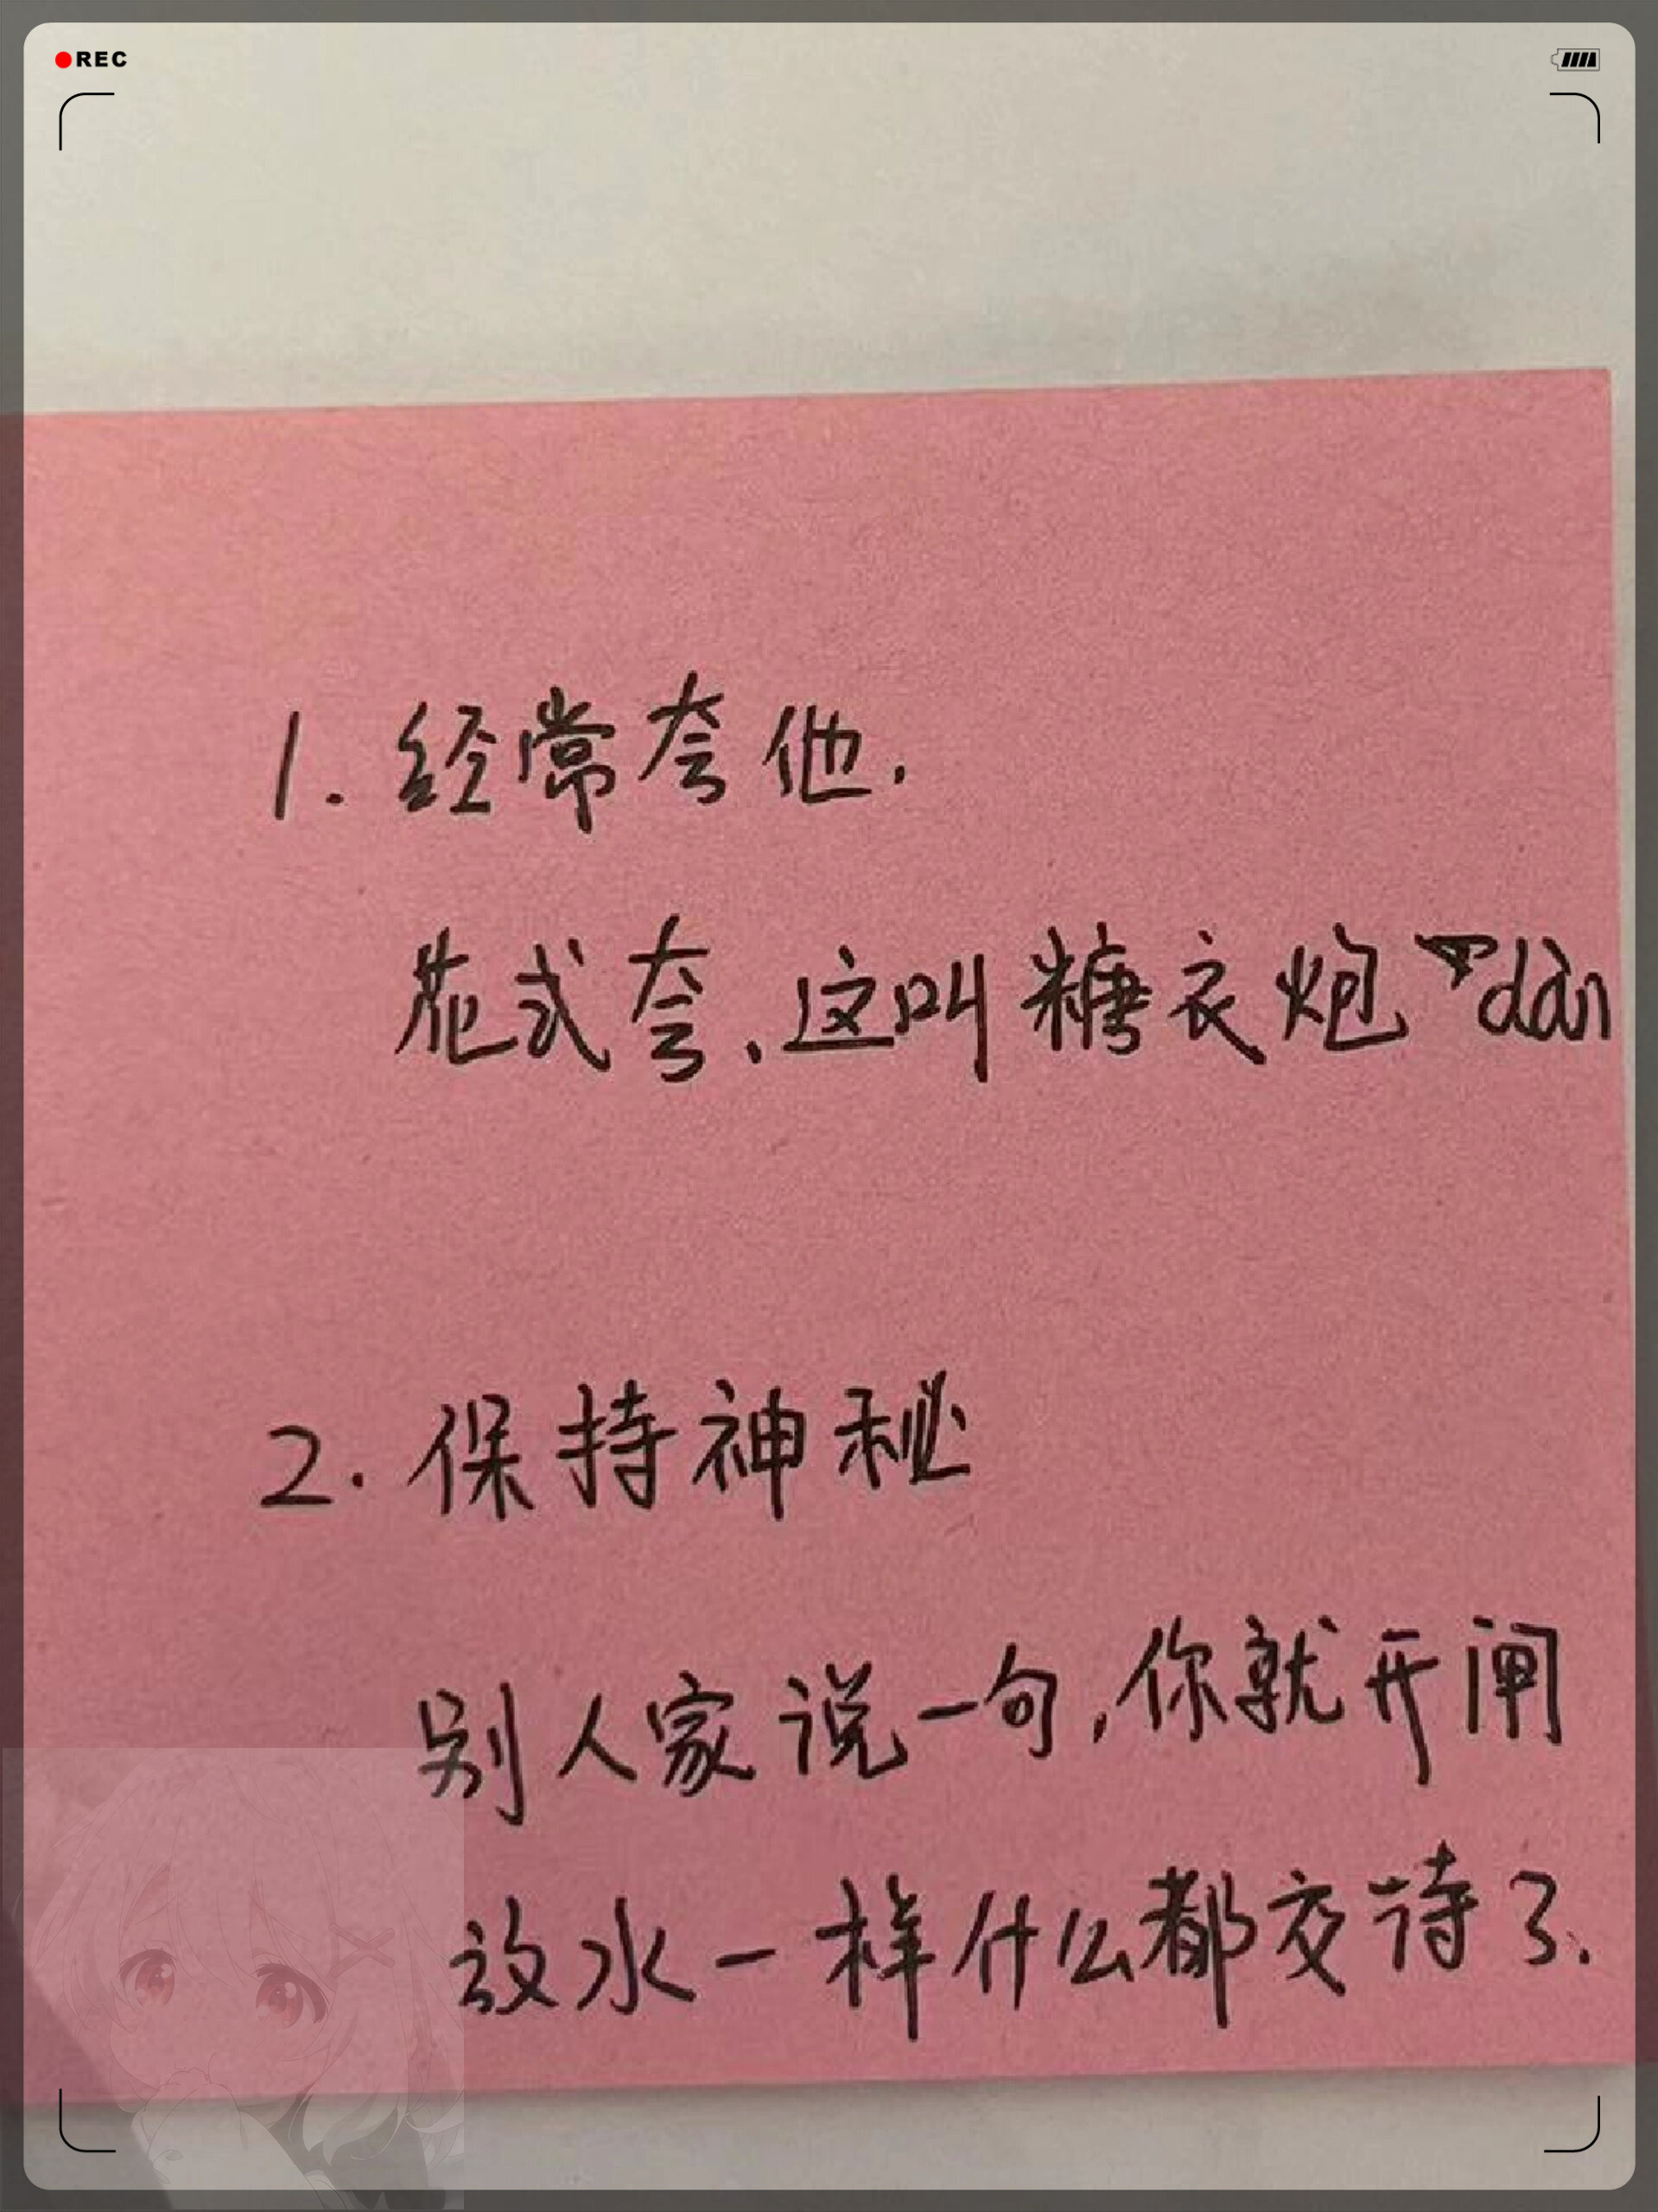 REC
1. 经常夸他.
花式夸、这叫糖衣炮dàn
2. 保持神秘
别人家说一句,你就开闸
放水一样什么都交待了.